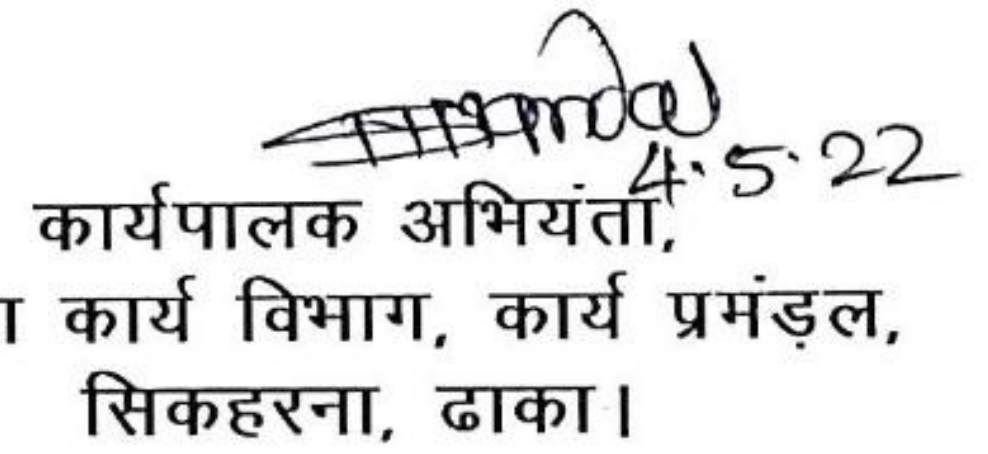 4.5.22
कार्यपालक अभियंता,
कार्य विभाग, कार्य प्रमंड़ल,
सिकहरना, ढाका।